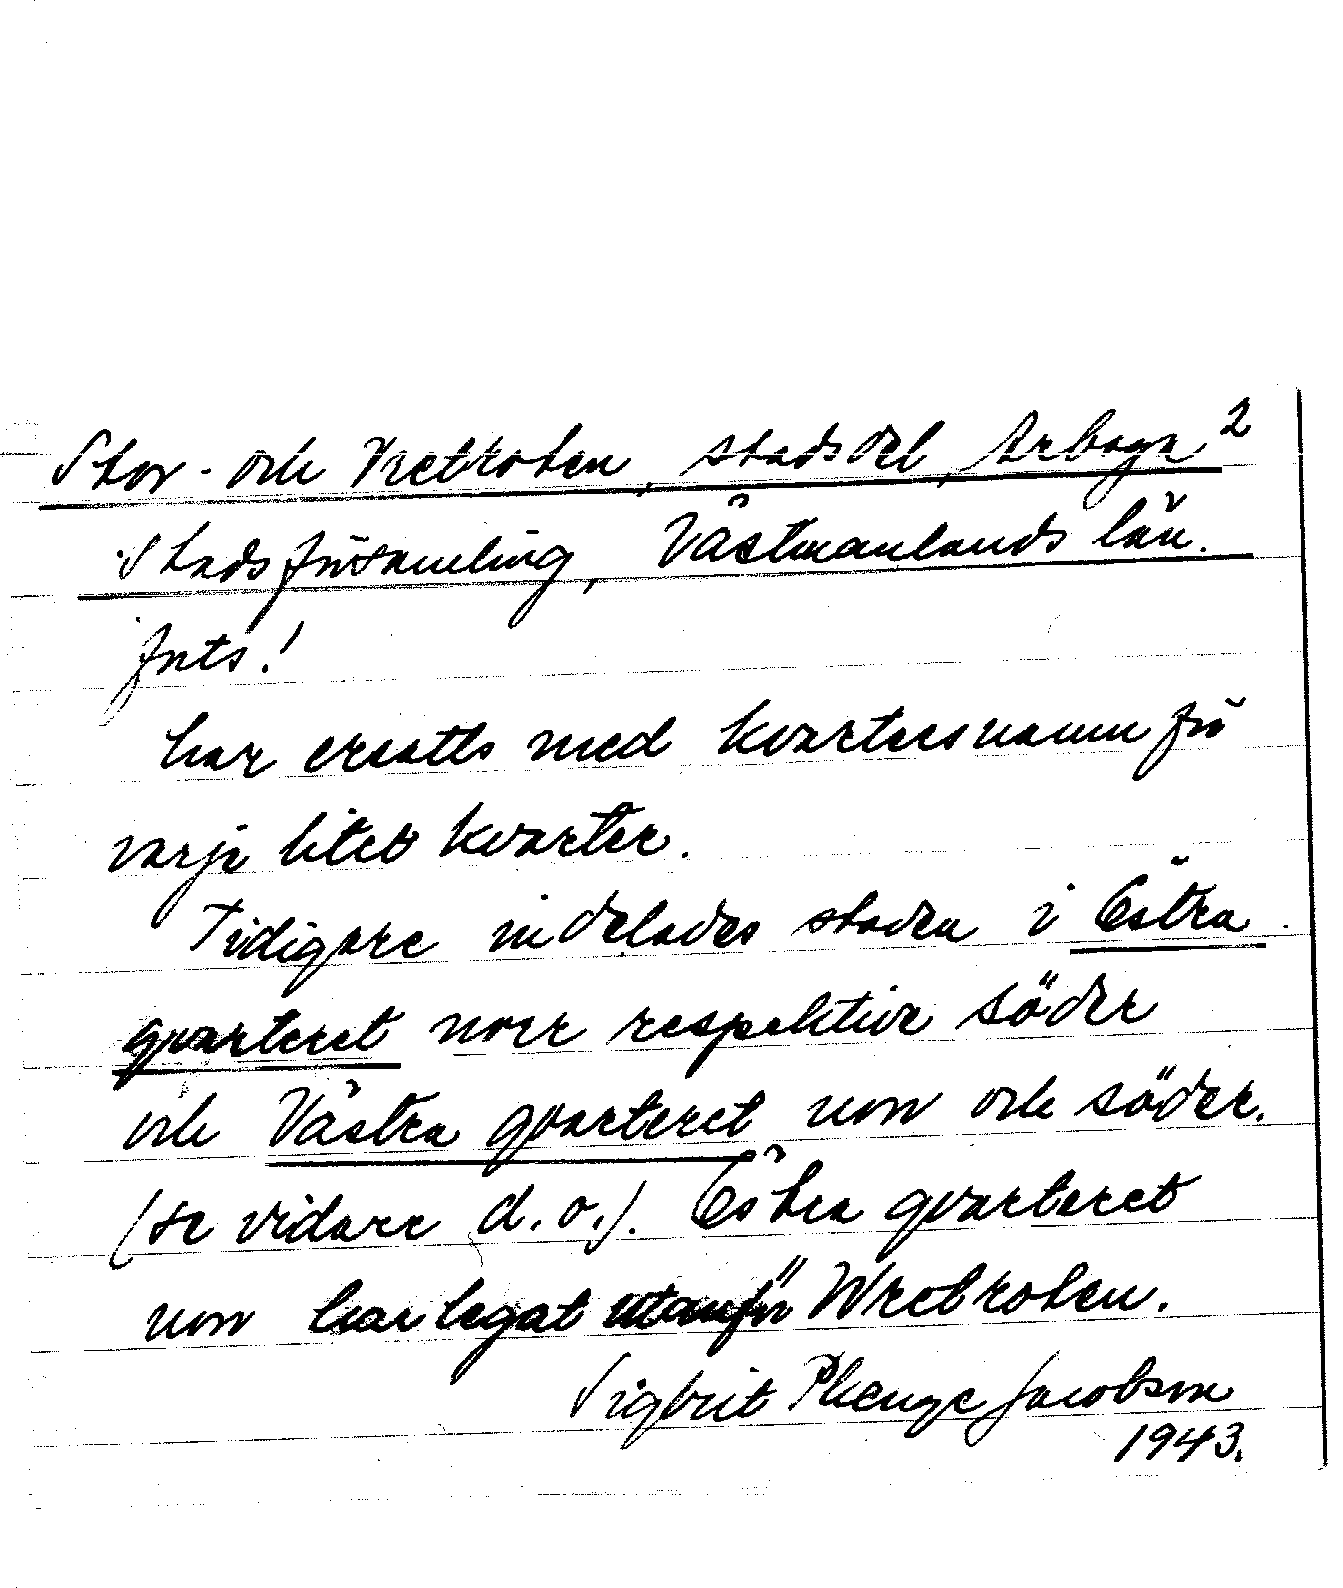 Stor- och Vretroten, stadsdel, Arboga 2
Stadsförsamling, Västmanlands län.
forts.!
har ersatts med kvartersnamn för
varje litet kvarter.
Tidigare indelades staden i Östra
qvarteret norr respektive söder
och Västra qvarteret norr och söder.
(se vidare d.o.). Östra qvarteret
norr har legat utanför Wretroten.
Sigbrit Plænge Jacobson
1943.